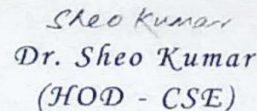 Sheo Kumar
Dr. Sheo Kumar
(HOD - CSE)